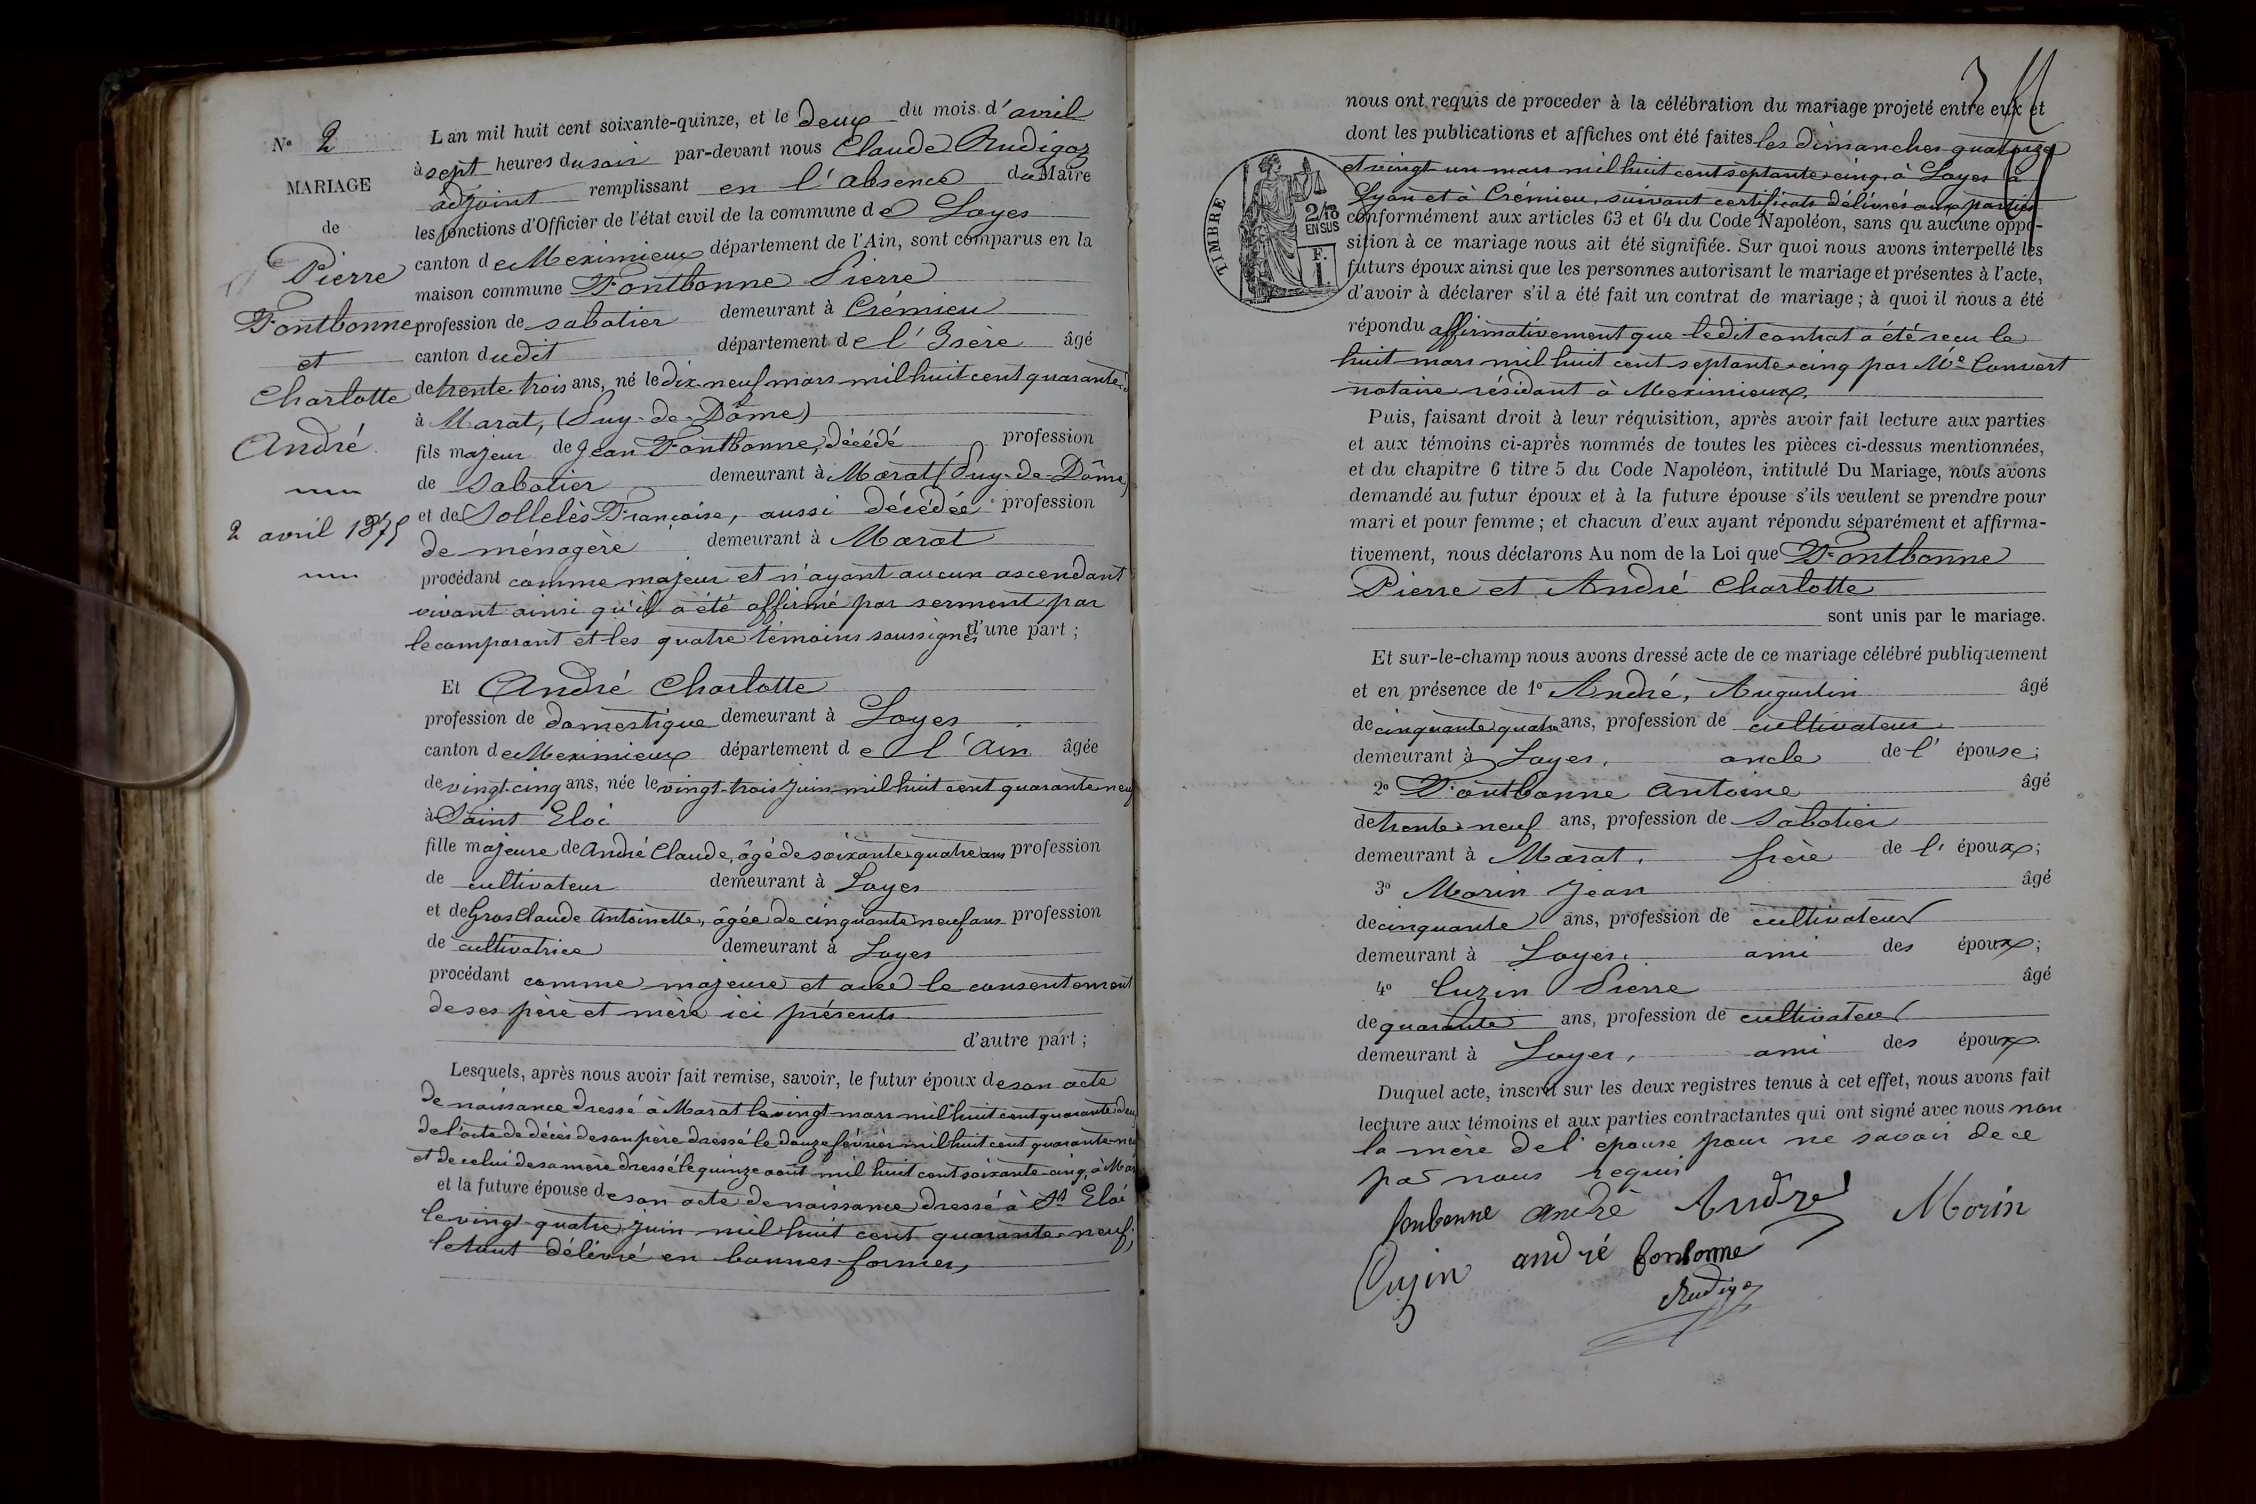 N° 2
MARIAGE
de
Pierre
Fontbonne
et
Charlotte
André
2 avril 1875
L'an mil huit cent soixante-quinze, et le deux du mois d'avril
à sept heures du soir par-devant nous Claude Rudigoz
adjoint remplissant en l'absence du Maire
les fonctions d'Officier de l'état civil de la commune de Loyes
canton de Meximieux département de l'Ain, sont comparus en la
maison commune Fontbonne Pierre
profession de sabotier demeurant à Crémieu
canton dudit département de l'Isère âgé
de trente trois ans, né le dix-neuf mars mil huit cent quarante
à Marat, (Puy-de-Dôme)
fils majeur de Jean Fontbonne, décédé profession
de sabotier demeurant à Marat (Puy-de-Dôme)
et de Sollelès Françoise, aussi décédée profession
de ménagère demeurant à Marat
procédant comme majeur et n'ayant aucun ascendant
vivant ainsi qu'il a été affirmé par serment par
le comparant et les quatre témoins soussignés d'une part ;
Et André Charlotte
profession de domestique demeurant à Loyes
canton de Meximieux département de l'Ain âgée
de vingt-cinq ans, née le vingt-trois juin mil huit cent quarante neuf
à Saint Eloi
fille majeure de André Claude, âgé de soixante quatre ans profession
de cultivateur demeurant à Loyes
et de Gros Claude Antoinette, âgée de cinquante neuf ans profession
de cultivatrice demeurant à Loyes
procédant comme majeure et avec le consentement
de ses père et mère ici présents
d'autre part ;
Lesquels, après nous avoir fait remise, savoir, le futur époux de son acte
de naissance dressé à Marat le vingt mars mil huit cent quarante deux
de l'acte de décès de son père dressé le douze février mil huit cent quarante neuf
et de celui de sa mère dressé le quinze août mil huit cent soixante-cinq, à Mar
et la future épouse de son acte de naissance dressé à St Eloi
le vingt-quatre juin mil huit cent quarante-neuf;
le tout délivré en bonnes formes,
nous ont requis de proceder à la célébration du mariage projeté entre eux et
dont les publications et affiches ont été faites les dimanches quatorze
et vingt un mars mil huit cent septante-cinq, à Loyes à
Lyon et à Crémieu, suivant certificats délivrés aux parties
TIMBRE
2/10
EN SUS
F.
1.
conformément aux articles 63 et 64 du Code Napoléon, sans qu'aucune oppo-
sition à ce mariage nous ait été signifiée. Sur quoi nous avons interpellé les
futurs époux ainsi que les personnes autorisant le mariage et présentes à l'acte,
d'avoir à déclarer s'il a été fait un contrat de mariage ; à quoi il nous a été
répondu affirmativement que ledit contrat a été reçu le
huit mars mil huit cent septante-cinq par Me Convert
notaire résidant à Meximieux.
Puis, faisant droit à leur réquisition, après avoir fait lecture aux parties
et aux témoins ci-après nommés de toutes les pièces ci-dessus mentionnées,
et du chapitre 6 titre 5 du Code Napoléon, intitulé Du Mariage, nous avons
demandé au futur époux et à la future épouse s'ils veulent se prendre pour
mari et pour femme ; et chacun d'eux ayant répondu séparément et affirma-
tivement, nous déclarons Au nom de la Loi que Fontbonne
Pierre et André Charlotte
sont unis par le mariage.
Et sur-le-champ nous avons dressé acte de ce mariage célébré publiquement
et en présence de 1° André, Augustin âgé
de cinquante quatre ans, profession de cultivateur
demeurant à Loyes, oncle de l' épouse ;
2° Fontbonne Antoine âgé
de trente-neuf ans, profession de sabotier
demeurant à Marat, frère de l' époux ;
3° Morin Jean âgé
de cinquante ans, profession de cultivateur
demeurant à Loyes, ami des époux ;
4° Cuzin Pierre âgé
de quarante ans, profession de cultivateur
demeurant à Loyes, ami des époux.
Duquel acte, inscrit sur les deux registres tenus à cet effet, nous avons fait
lecture aux témoins et aux parties contractantes qui ont signé avec nous non
la mère de l'epouse pour ne savoir de ce
par nous requis
fonbonne andré André Morin
Cuzin andré fonbonne
Rudigoz